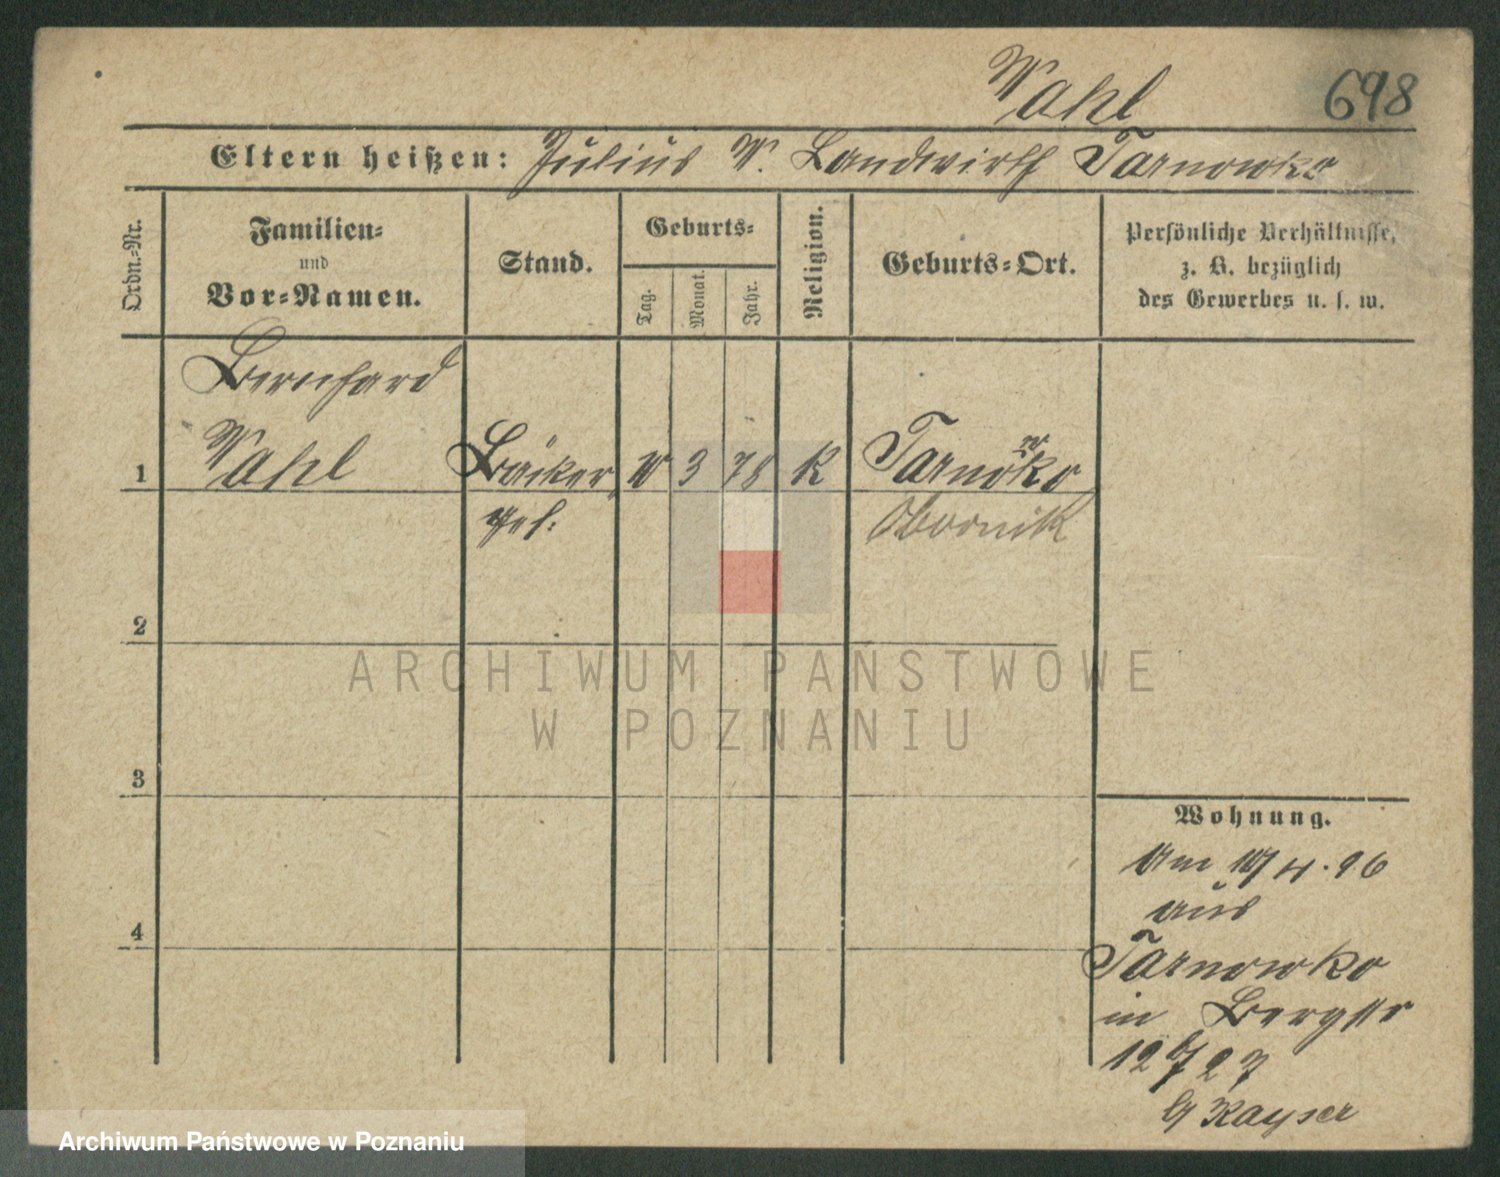 Wahl 698
Eltern heißen: Julius W. Landwirth Tarnowko
Ordn.-Nr.
Familien-
und
Vor-Namen.
Stand.
Geburts-
Tag.
Monat.
Jahr.
Religion.
Geburts-Ort.
Persönliche Verhältnisse,
z. B. bezüglich
des Gewerbes u. s. w.
Bernhard
1 Wahl Bäcker 3 78 K Tarnowko
gel. Obornik
2
3
4
Wohnung.
Am 4. 96
aus
Tarnowko
in Bergstr
12
Kayser
ARCHIWUM PAŃSTWOWE
W POZNANIU
Archiwum Państwowe w Poznaniu